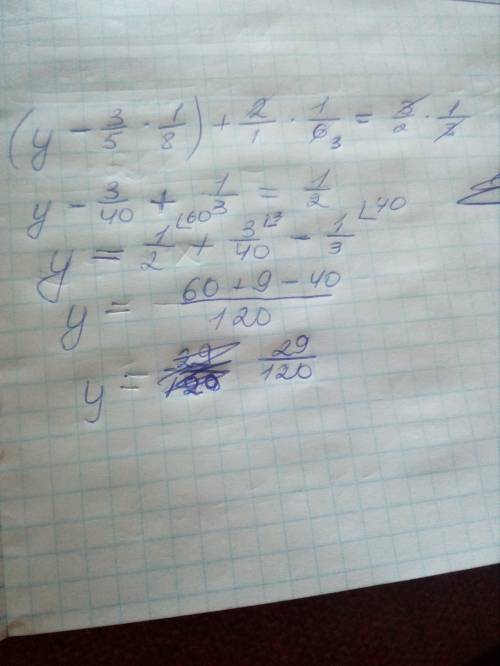 (y - 3/5 · 1/8) + 2/1 · 1/6 3 = 3/2 · 1/3
y - 3/40 + 1/3 = 1/2
y = 1/2 ∟60 + 3/40 ∟3 - 1/3 ∟40
y = 60 + 9 - 40 / 120
y = 29/120 29/120